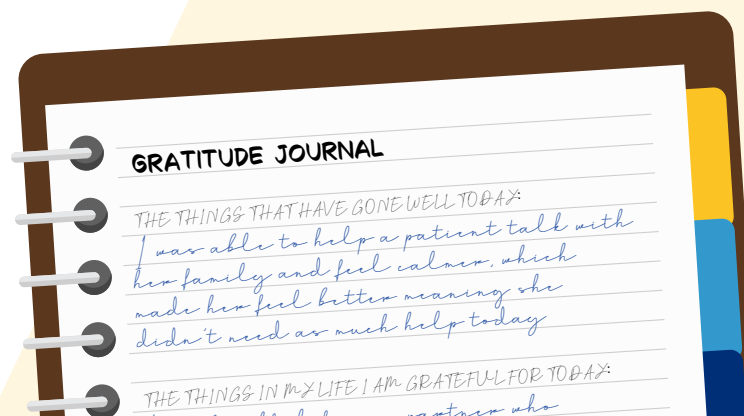 GRATITUDE JOURNAL
THE THINGS THAT HAVE GONE WELL TODAY:
I was able to help a patient talk with
her family and feel calmer, which
made her feel better meaning she
didn't need as much help today
THE THINGS IN MY LIFE I AM GRATEFUL FOR TODAY:
who